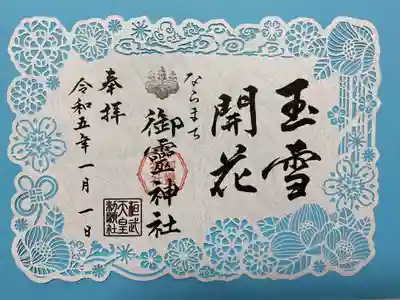 玉雪
開花
ならまち
御霊神社
桓武
天皇
勅願社
奉拝
令和五年一月一日